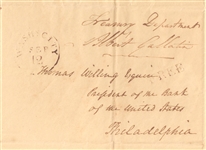 Treasury Department
Albert Gallatin
FREE
Thomas Willing Esquire
President of the Bank
of the United States
Philadelphia